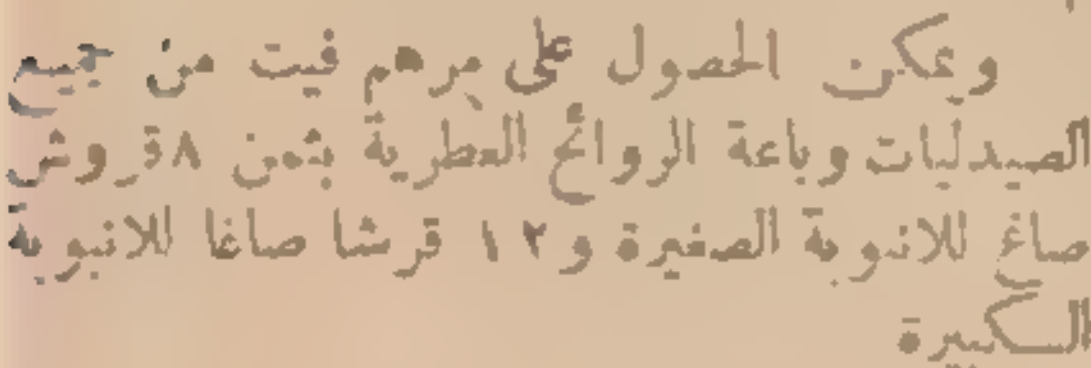 ويمكن الحصول على مرهم فيت من جميع
الصيدليات وباعة الروائح العطرية بثمن ٨ قروش
صاغ للانبوبة الصغيرة و ١٢ قرشا صاغا للانبوبة
الكبيرة